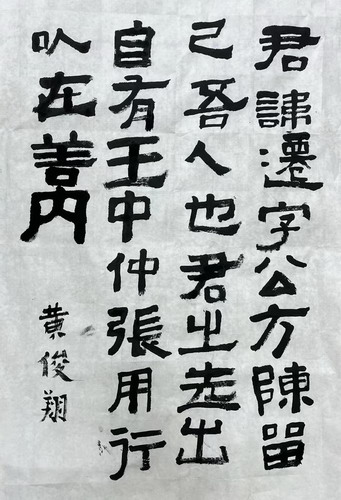 君諱遷字公方陳留
己吾人也君之先出
自有王中仲張用行
以在善内
黄俊翔